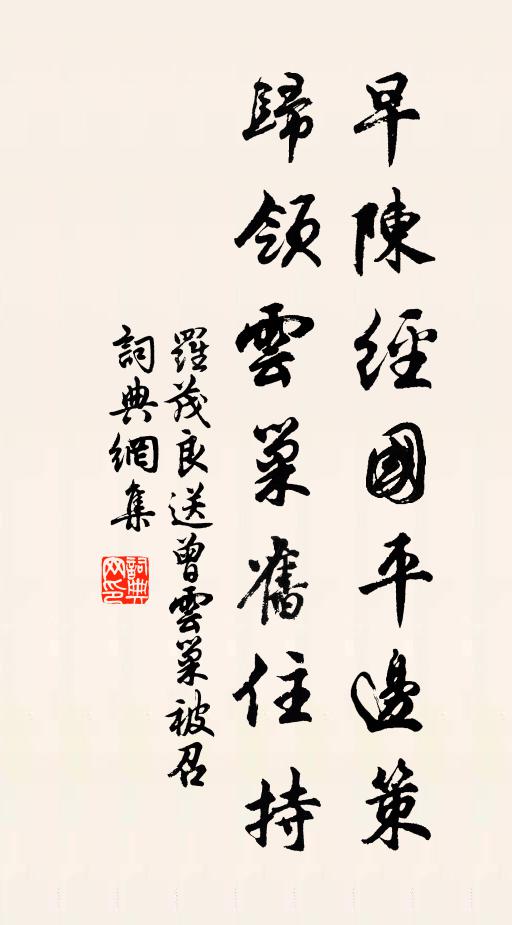 早陳經國平邊策
歸領雲巢舊住持
羅茂良送曾雲巢被召
詞典網集
詞典
网印